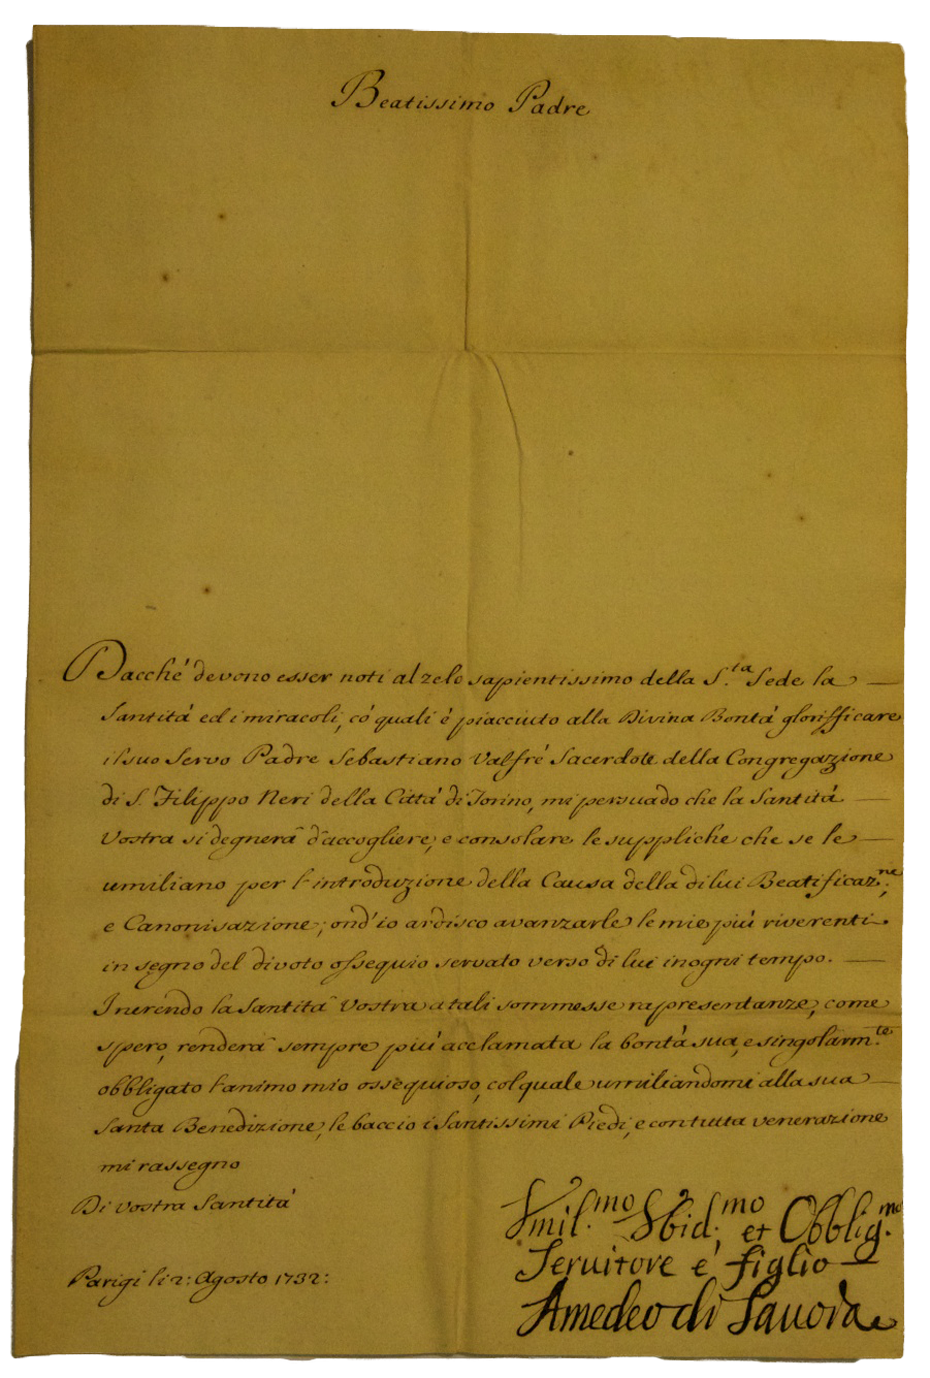 Beatissimo Padre
Dacché devono esser noti al zelo sapientissimo della S.ta Sede la
Santità ed i miracoli, có quali é piacciuto alla Divina Bontà glorifficare
il suo Servo Padre Sebastiano Valfré Sacerdote della Congregazione
di S. Filippo Neri della Città di Torino, mi persuado che la Santità
Vostra si degnerà d'accogliere, e consolare le suppliche che se le
umiliano per l'introduzione della Causa della di lui Beatificaz.ne,
e Canonisazione, ond'io ardisco avanzarle le mie più riverenti
in segno del divoto ossequio servato verso di lui in ogni tempo.
Inerendo la Santità Vostra a tali sommesse rapresentanze, come
spero, renderà sempre più acclamata la bontà sua, e singolarm.te
obbligato l'animo mio ossequioso, col quale umiliandomi alla sua
Santa Benedizione, le baccio i Santissimi Piedi, e con tutta venerazione
mi rassegno
Di Vostra Santità
Vmil.mo Vbid.mo et Obblig.mo
Seruitore é figlio
Parigi li 2: Agosto 1732:
Amedeo di Sauoia